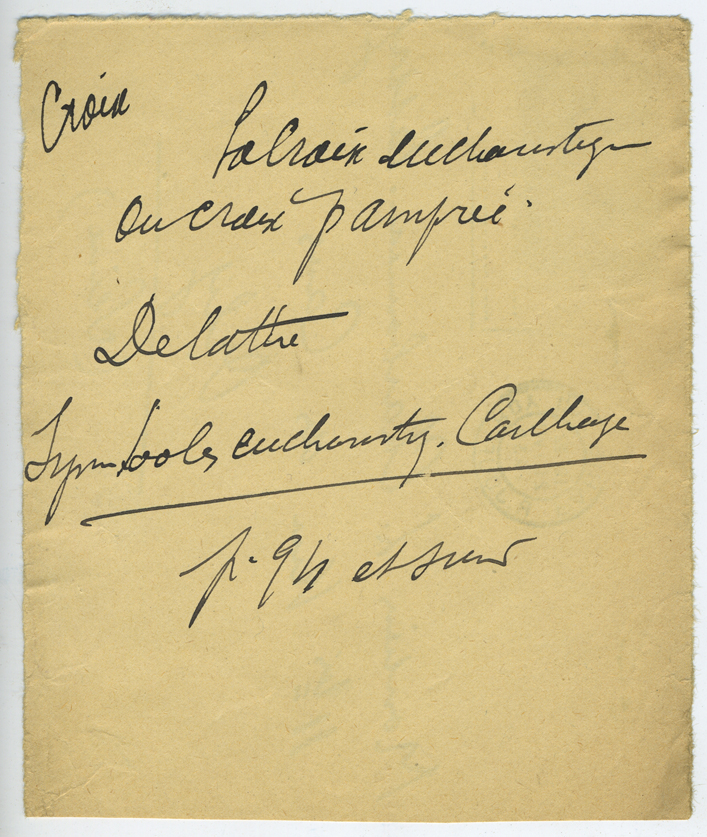 Croix
La Croix eucharistique
ou croix pampréé
Delattre
Symboles eucharistiq. Carthage
p. 94 et suiv